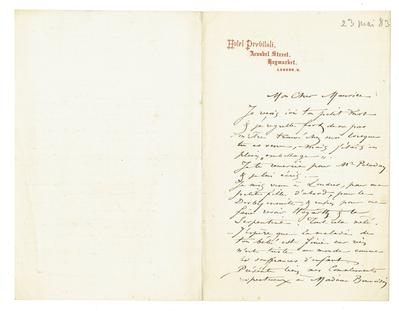 23 mai 83
Hotel Previtali,
Arundel Street,
Haymarket,
LONDON, W.
Mon Cher Maurice
Je reçois ici ton petit mot
& je regrette fort de ne pas
m'être trouvé chez moi lorsque
tu es venu, mais j'étais en
plein emballage
Je te remercie pour Mr
& je lui écris
Je suis venu à Londres, pour ma
petite fille d'abord, pour le
Derby ensuite & enfin pour me
faire revoir Hogarth & la
Serpentine. Tout cela mêlé.
J'espère que la maladie de
ton bébé est finie car rien
n'est triste au monde comme
les souffrances d'enfant
Présente bien mes compliments
respectueux à Madame